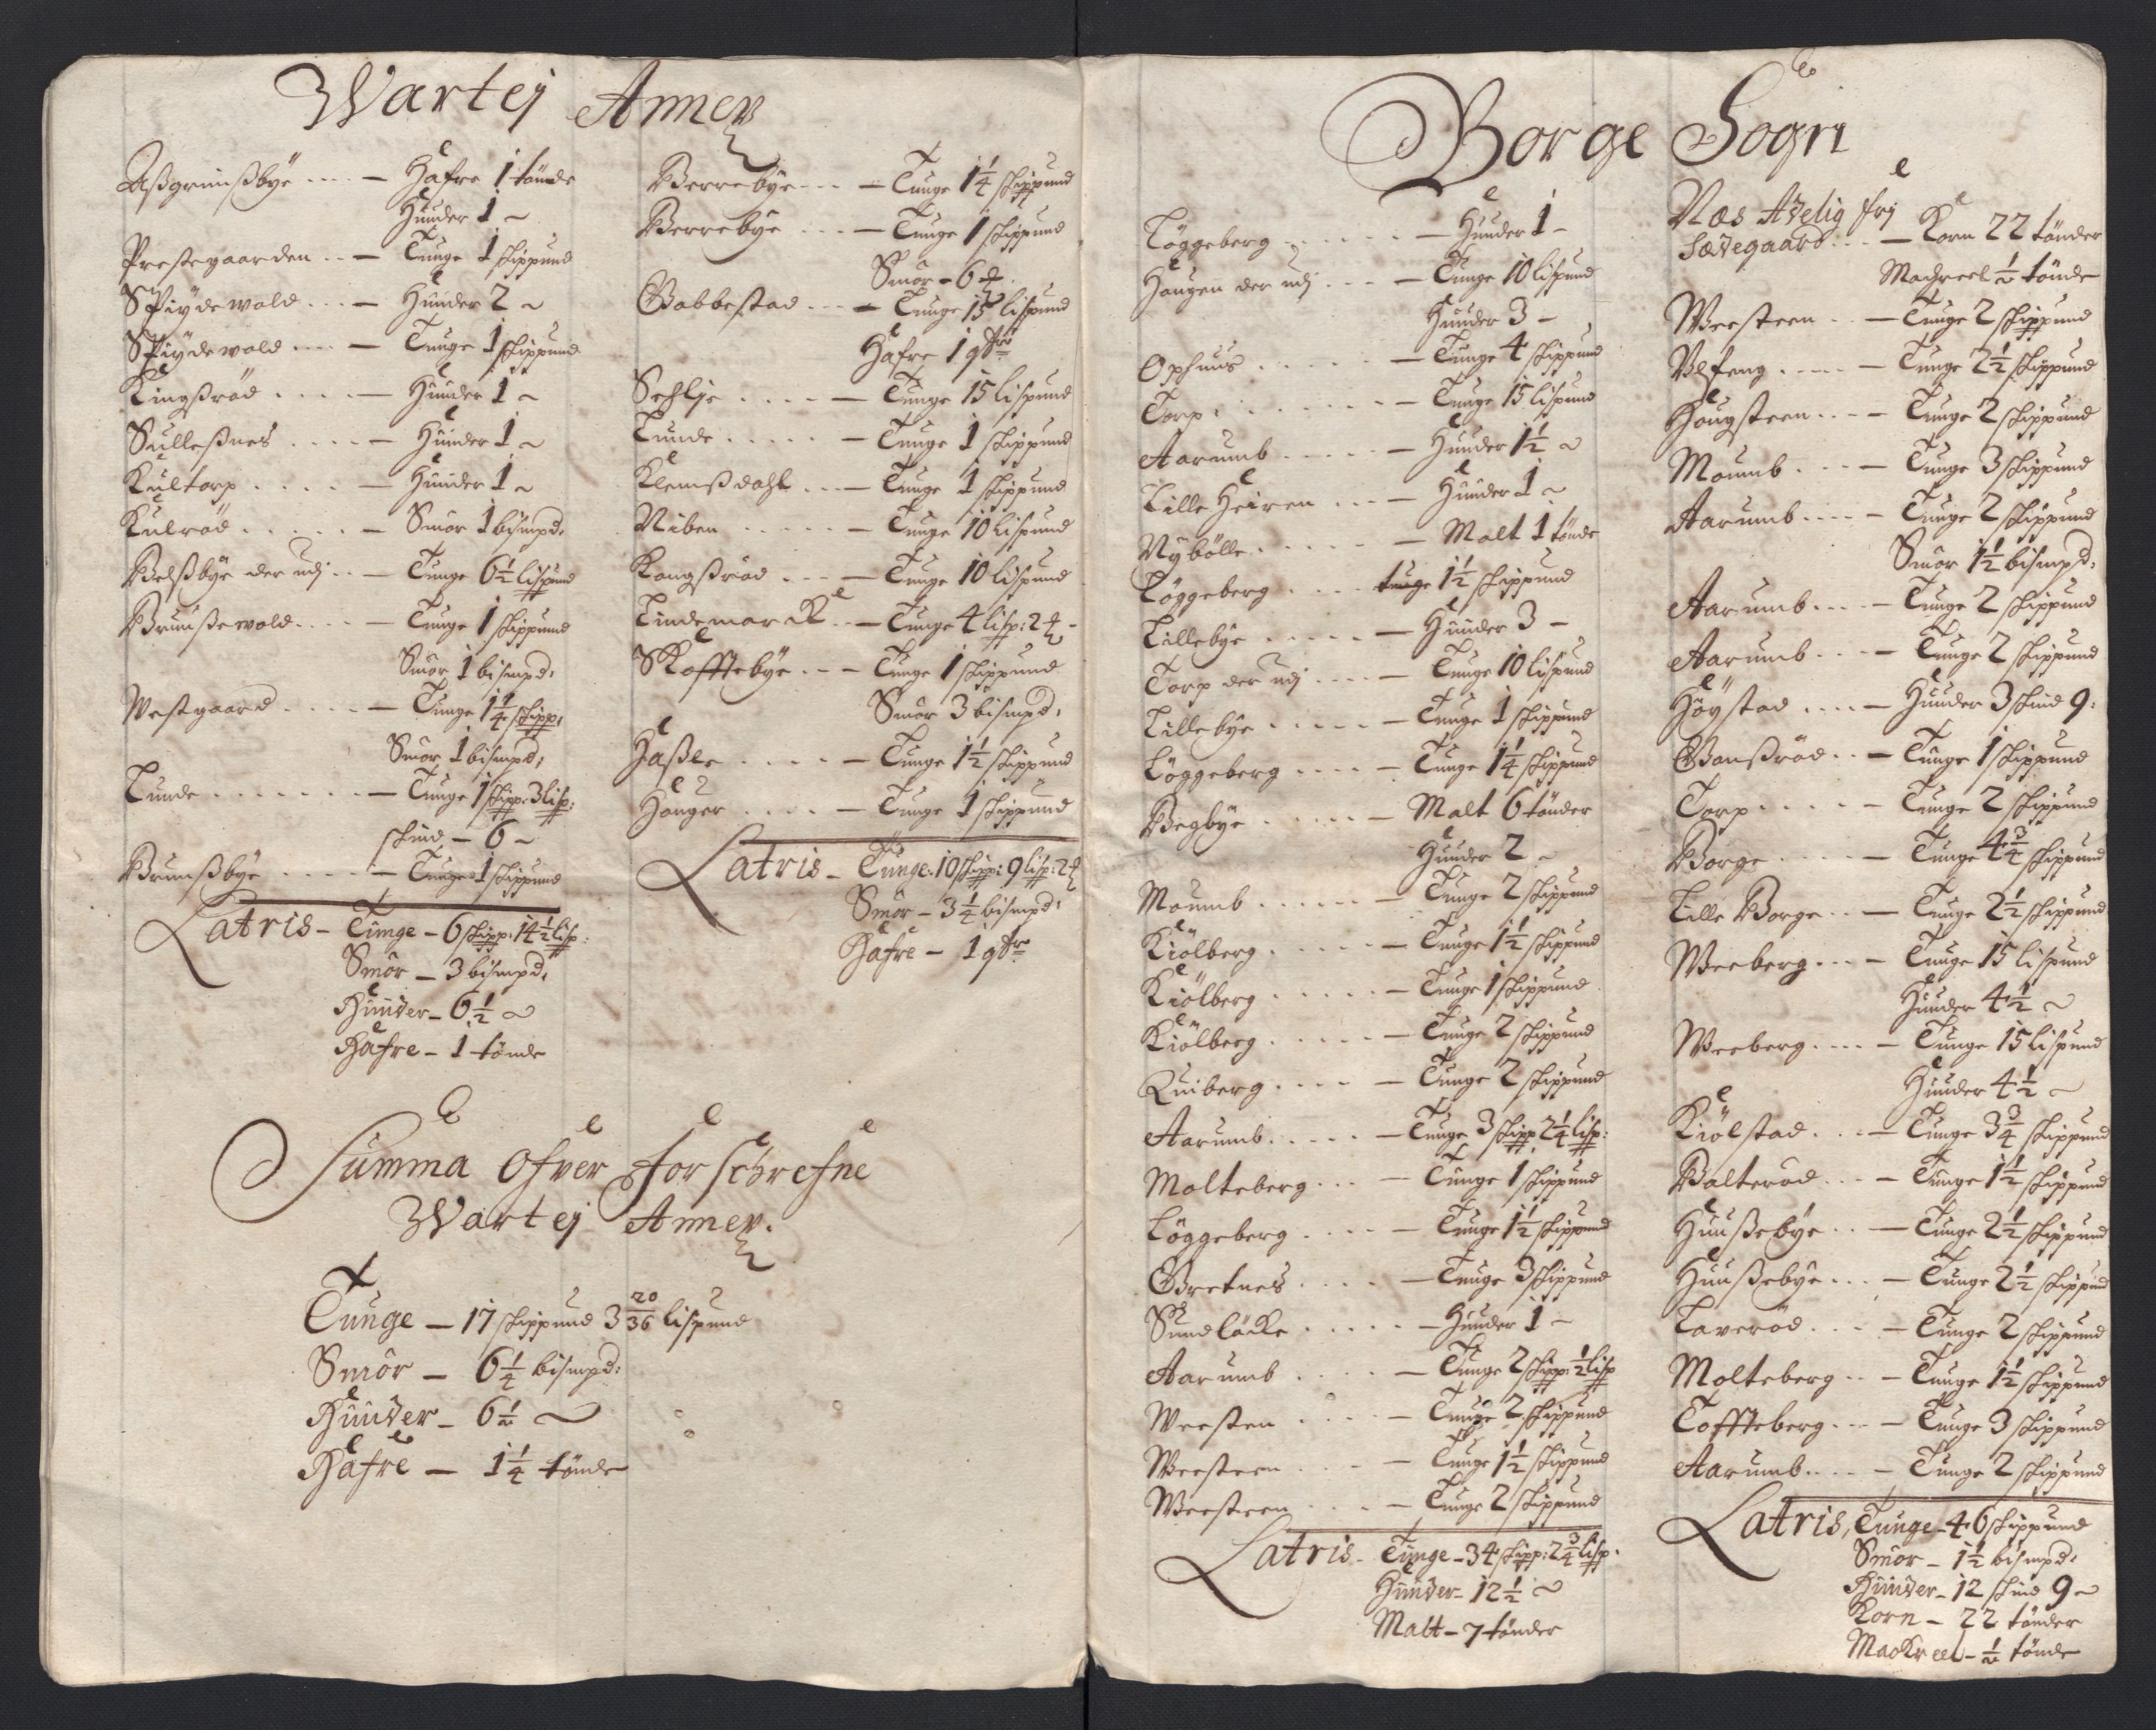 Wartej Annex
Aßgrimßbÿe .... — Hafre 1 tønde
Huuder 1 ~
Prestegaarden .. — Tunge 1 skippund
Spÿdewold ... — Huuder 2 ~
Spÿdewold .... — Tunge 1 skippund
Kingßrød .... — Huuder 1 ~
Sulleßnes .... — Huuder 1 ~
Kultorp .... — Huuder 1 ~
Kulrød ..... — Smör 1 bismpd:
Belßbÿe der udj .. — Tunge 6½ lispund
Bruußewold .... — Tunge 1 skippund
Smör 1 bismpd:
Westgaard .... — Tunge 1¼ skipp:
Smör 1 bismpd:
Lunde ....... — Tunge 1 skipp: 3 lisp:
skind — 6 ~
Brunßbÿe .... — Tunge 1 skippund
Latris — Tunge — 6 skipp: 14½ lisp:
Smör — 3 bismpd:
Huuder — 6½ ~
Hafre — 1 tønde
Berrebÿe ... — Tunge 1¼ skippund
Berrebÿe ... — Tunge 1 skippund
Smör — 6 ℔.
Gabbestad ... — Tunge 15 lispund
Hafre 1 qtr
Sehlje .... — Tunge 15 lispund
Lunde ..... — Tunge 1 skippund
Klemßdahl ... — Tunge 1 skippund
Niben ..... — Tunge 10 lispund
Kongßrød ... — Tunge 10 lispund
Lindemarck .. — Tunge 4 lisp: 2 ℔ —
Skofftebÿe .. — Tunge 1 skippund
Smör 3 bismpd:
Haßle .... — Tunge 1½ skippund
Hauger .... — Tunge 1 skippund
Latris — Tunge. 10 skipp: 9 lisp: 2 ℔
Smör — 3¼ bismpd:
Hafre — 1 qtr
Summa Ofver forschrefne
Wartej Annex.
Tunge — 17 skippund 3 20/36 lispund
Smör — 6¼ bismpd:
Huuder — 6½ ~
Hafre — 1¼ tønde
Borge Sogn
Löggeberg ...... — Huuder 1 —
Haugen der udj ... — Tunge 10 lispund
Huuder 3 —
Ophuus ..... — Tunge 4 skippund
Torp ....... — Tunge 15 lispund
Aarumb ..... — Huuder 1½ ~
Lille Heiren ... — Huuder 1 ~
Nÿbölle ..... — Malt 1 tønde
Löggeberg .... tunge 1½ skippund
Lillebÿe ..... — Huuder 3 —
Torp der udj .... — Tunge 10 lispund
Lillebÿe ..... — Tunge 1 skippund
Löggeberg .... — Tunge 1¼ skippund
Begbÿe ..... — Malt 6 tønder
Huuder 2 ~
Moumb ...... — Tunge 2 skippund
Kiölberg ..... — Tunge 1½ skippund
Kiölberg ..... — Tunge 1 skippund
Kiölberg ..... — Tunge 2 skippund
Quiberg .... — Tunge 2 skippund
Aarumb ..... — Tunge 3 skipp 2¼ lisp:
Molteberg ... — Tunge 1 skippund
Löggeberg .... — Tunge 1½ skippund
Gretnes .... — Tunge 3 skippund
Sundlöcke ..... — Huuder 1 ~
Aarumb .... — Tunge 2 skipp: ½ lisp
Weesten .... — Tunge 2 skippund
Weesteen .... — Tunge 1½ skippund
Weesteen .... — Tunge 2 skippund
Latris — Tunge — 34 skipp: 2¾ lisp.
Huuder — 12½ ~
Malt — 7 tønder
Næs Adelig frj
Sædegaard ... — Korn 22 tønder
Machreel ½ tønde
Weesteen .. — Tunge 2 skippund
Ulfeng ..... — Tunge 2½ skippund
Haugsteen ... — Tunge 2 skippund
Moumb .... — Tunge 3 skippund
Aarumb .... — Tunge 2 skippund
Smör 1½ bismpd:
Aarumb .... — Tunge 2 skippund
Aarumb .... — Tunge 2 skippund
Höÿstad .... — Huuder 3 skind 9:
Gansrød .. — Tunge 1 skippund
Torp ..... — Tunge 2 skippund
Borge .... — Tunge 4¾ skippund
Lille Borge .. — Tunge 2½ skippund
Weeberg ... — Tunge 15 lispund
Huuder 4½ ~
Weeberg .... — Tunge 15 lispund
Huuder 4½ ~
Kiölstad ... — Tunge 3¾ skippund
Balterød ... — Tunge 1½ skippund
Huußebÿe .. — Tunge 2½ skippund
Huußebÿe ... — Tunge 2½ skippund
Laverød .... — Tunge 2 skippund
Molteberg .. — Tunge 1½ skippund
Toffteberg ... — Tunge 3 skippund
Aarumb .... — Tunge 2 skippund
Latris, Tunge — 46 skippund
Smör — 1½ bismpd:
Huuder — 12 skind 9 ~
Korn — 22 tønder
Mackreel — ½ tønde